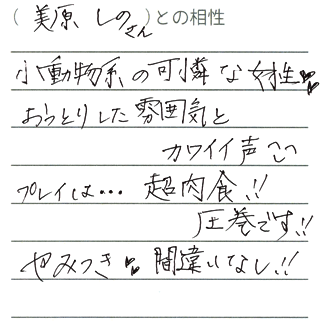 (美原 しのさん)との相性
小動物系の可憐な女性♥♥
おっとりした雰囲気と
カワイイ声
プレイは… 超肉食!!
圧巻です!!
やみつき♥♥間違いなし!!